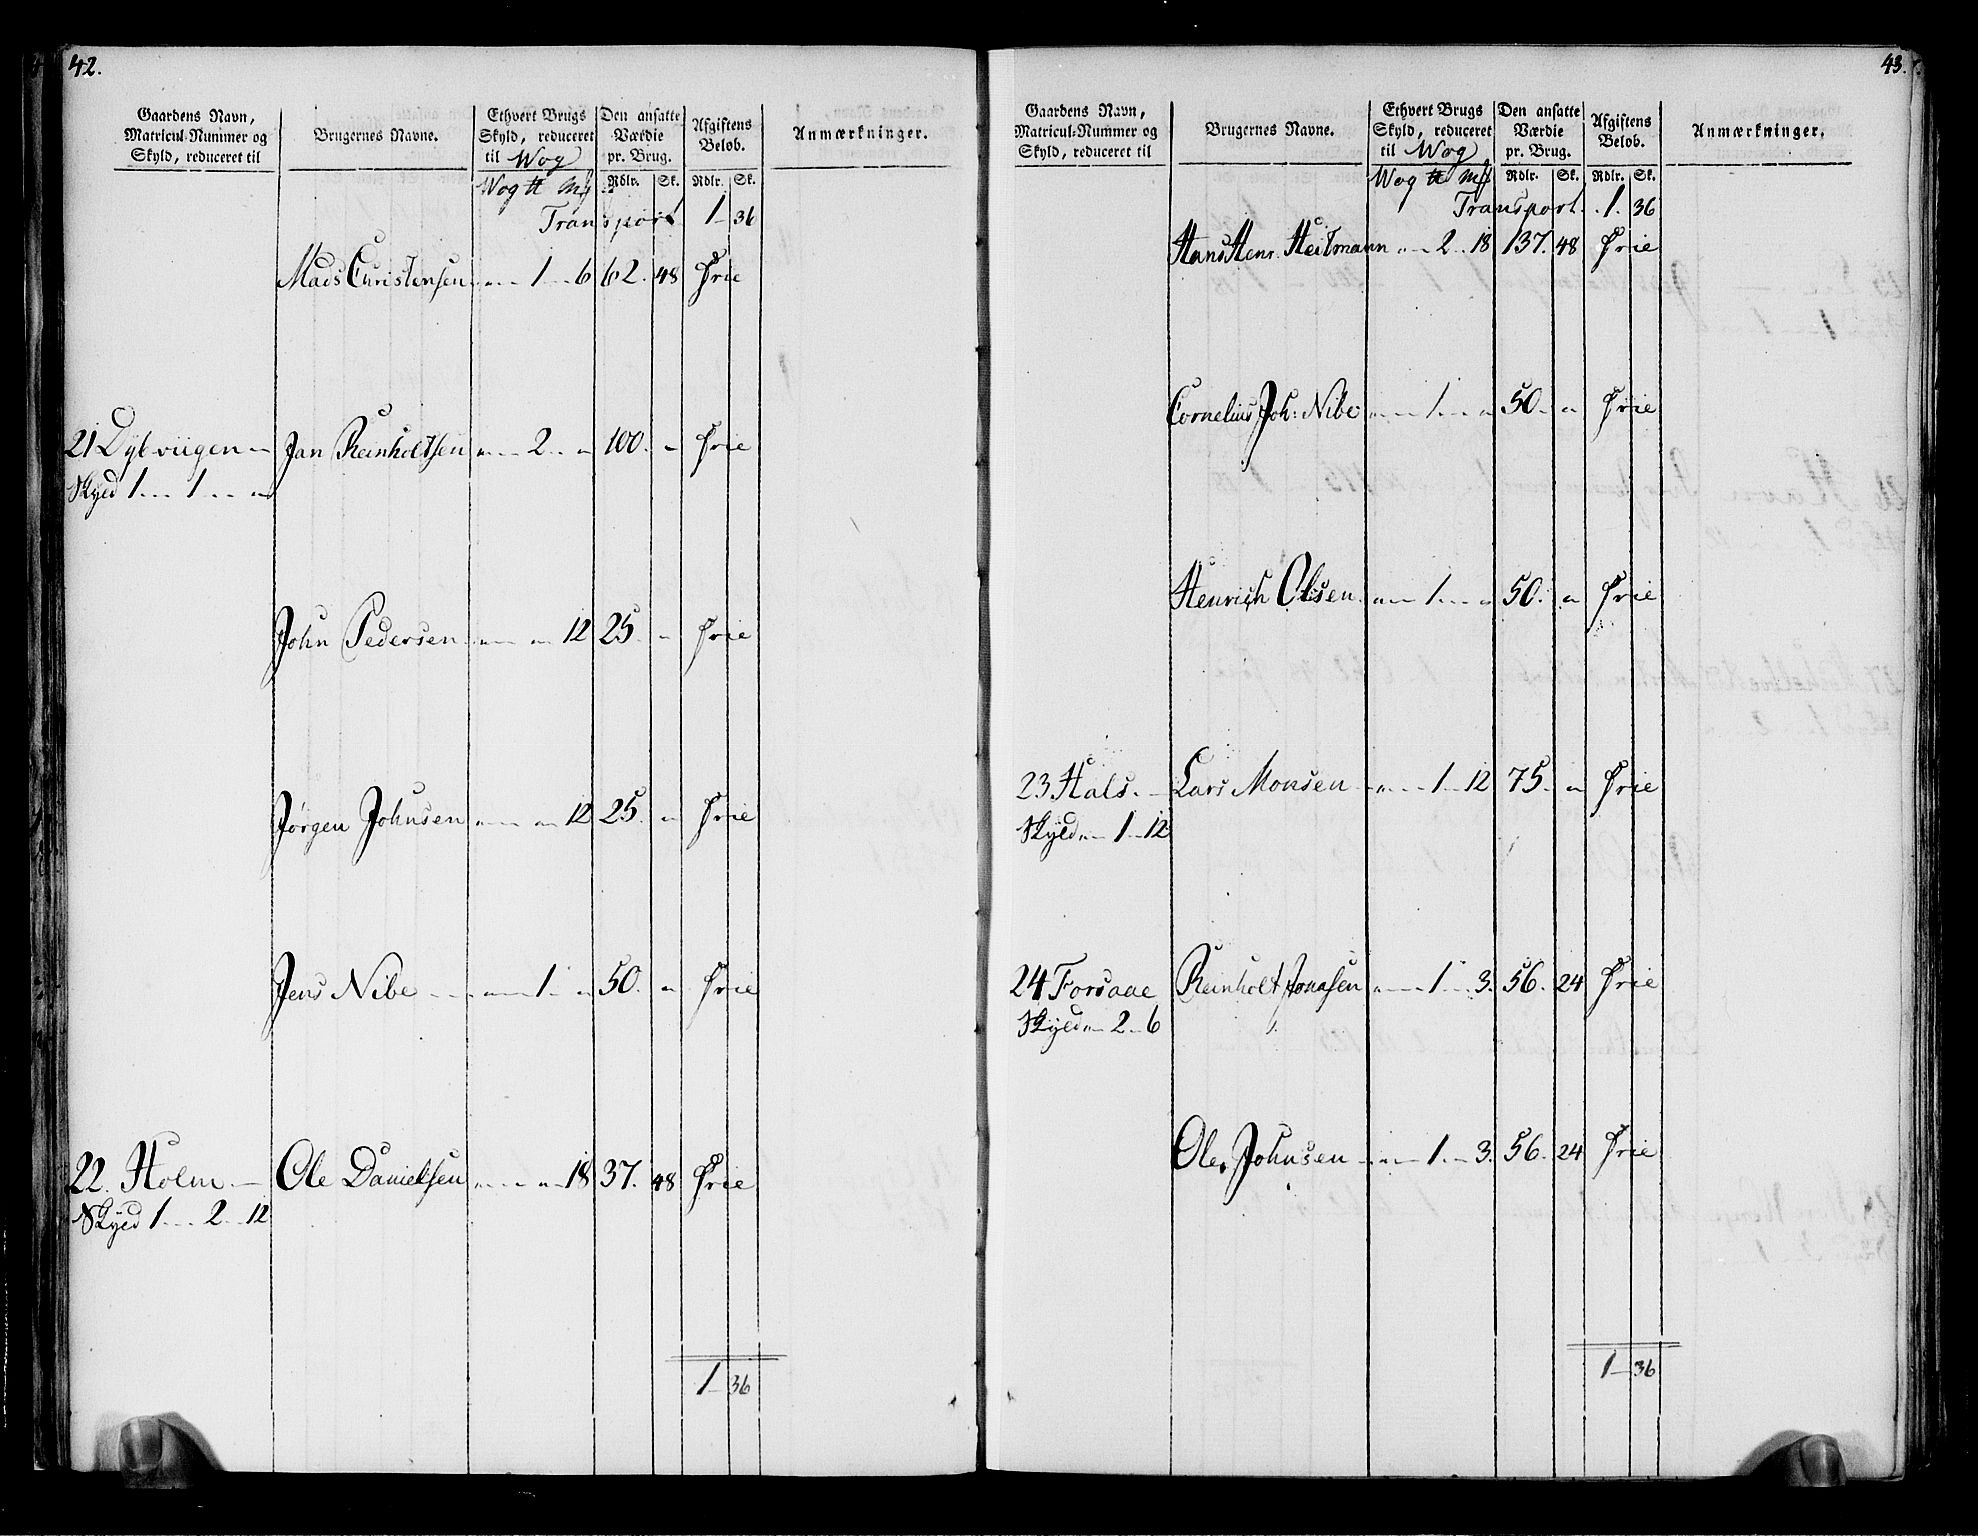 42.
Gaardens Navn, Matricul-Nummer og Skyld, reduceret til
Brugernes Navne.
Ethvert Brugs Skyld, reduceret til Wog
Den ansatte Værdie pr. Brug.
Afgiftens Beløb.
Anmærkninger.
Wog ℔ Mk Rdlr. Sk. Rdlr. Sk.
Transport 1 - 36
Mads Christensen „ - 1 - 6 62. 48 Frie
21 Dybviigen - Jan Reinholtsen „ - 2 - „ 100. „ Frie
Skyld 1 - 1 - „
John Pedersen „ - „ 12 25. „ Frie
Jørgen Johnsen „ - „ 12 25. „ Frie
Jens Nibe - - „ - 1 - „ 50. „ Frie
22. Holm - Ole Danielsen „ - „ - 18 37. 48 Frie
Skyld 1 - 2 - 12
1 - 36
43.
Gaardens Navn, Matricul-Nummer og Skyld, reduceret til
Brugernes Navne.
Ethvert Brugs Skyld, reduceret til Wog
Den ansatte Værdie pr. Brug.
Afgiftens Beløb.
Anmærkninger.
Wog ℔ Mk Rdlr. Sk. Rdlr. Sk.
Transport. 1. 36
Hans Henr. Heitmann „ - 2 - 18 137. 48 Frie
Cornelius Joh: Nibe „ - 1 - „ 50. „ Frie
Henrich Olsen „ - 1 - „ 50. „ Frie
23 Hals. - Lars Monsen „ - 1 - 12 75. „ Frie
Skyld „ - 1 - 12
24 Forsaae Reinholt Jonassen „ - 1 - 3. 56. 24 Frie
Skyld „ - 2 - 6
Ole Johnsen „ - 1 - 3. 56. 24 Frie
1 - 36